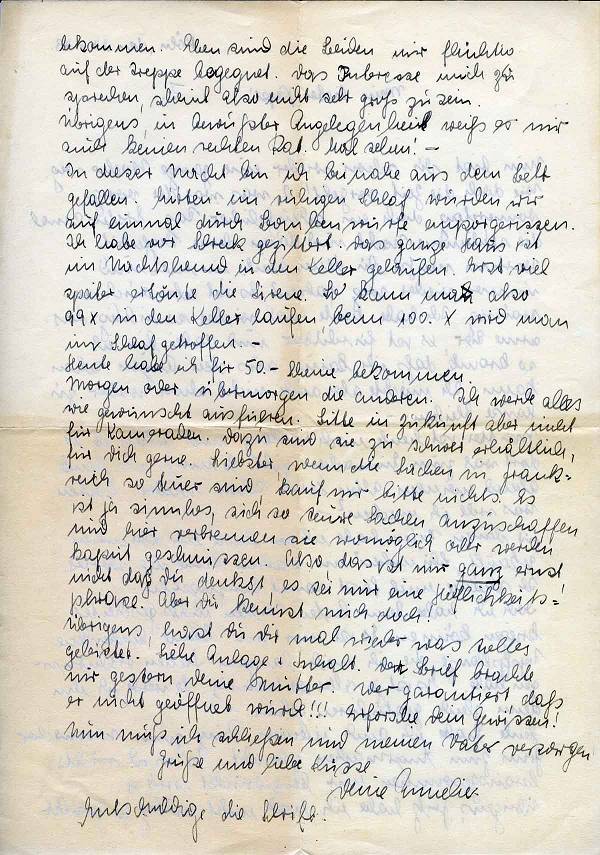 bekommen. Eben sind die Beiden mir flüchtig
auf der Treppe begegnet. Das Interesse mich zu
sprechen, scheint also nicht sehr gross zu sein.
Übrigens, in bewußter Angelegenheit weiß er mir
auch keinen rechten Rat. Mal sehen! –
In dieser Nacht bin ich beinahe aus dem Bett
gefallen. Mitten im ruhigen Schlaf wurden wir
auf einmal durch Bombenwürfe emporgerissen.
Ich habe vor Schreck gezittert. Das ganze Haus ist
im Nachthemd in den Keller gelaufen. Erst viel
später ertönte die Sirene. So kann man also
99 x in den Keller laufen, beim 100. x wird man
im Schlaf getroffen. –
Heute habe ich für 50.- Scheine bekommen.
Morgen oder übermorgen die anderen. Ich werde alles
wie gewünscht ausführen. Bitte in Zukunft aber nicht
für Kameraden. Dazu sind sie zu schwer erhältlich,
für Dich gerne. Liebster, wenn die Sachen in Frank-
reich so teuer sind, kauf mir bitte nichts. Es
ist ja sinnlos, sich so teure Sachen anzuschaffen
und hier verbrennen sie womöglich oder werden
kaputt geschmissen. Also das ist mir ganz ernst
nicht daß Du denkst, es sei mir eine Höflichkeits-
phrase. Aber Du kennst mich doch!
Übrigens, hast Du Dir mal wieder was tolles
geleistet. Siehe Anlage + Inhalt. Den Brief brachte
mir gestern Deine Mutter. Wer garantiert daß
er nicht geöffnet wurde!!! Erforsche Dein Gewissen!
Nun muß ich schließen und meinen Vater versorgen
Grüße und liebe Küsse
Deine
Entschuldige die Schrift!